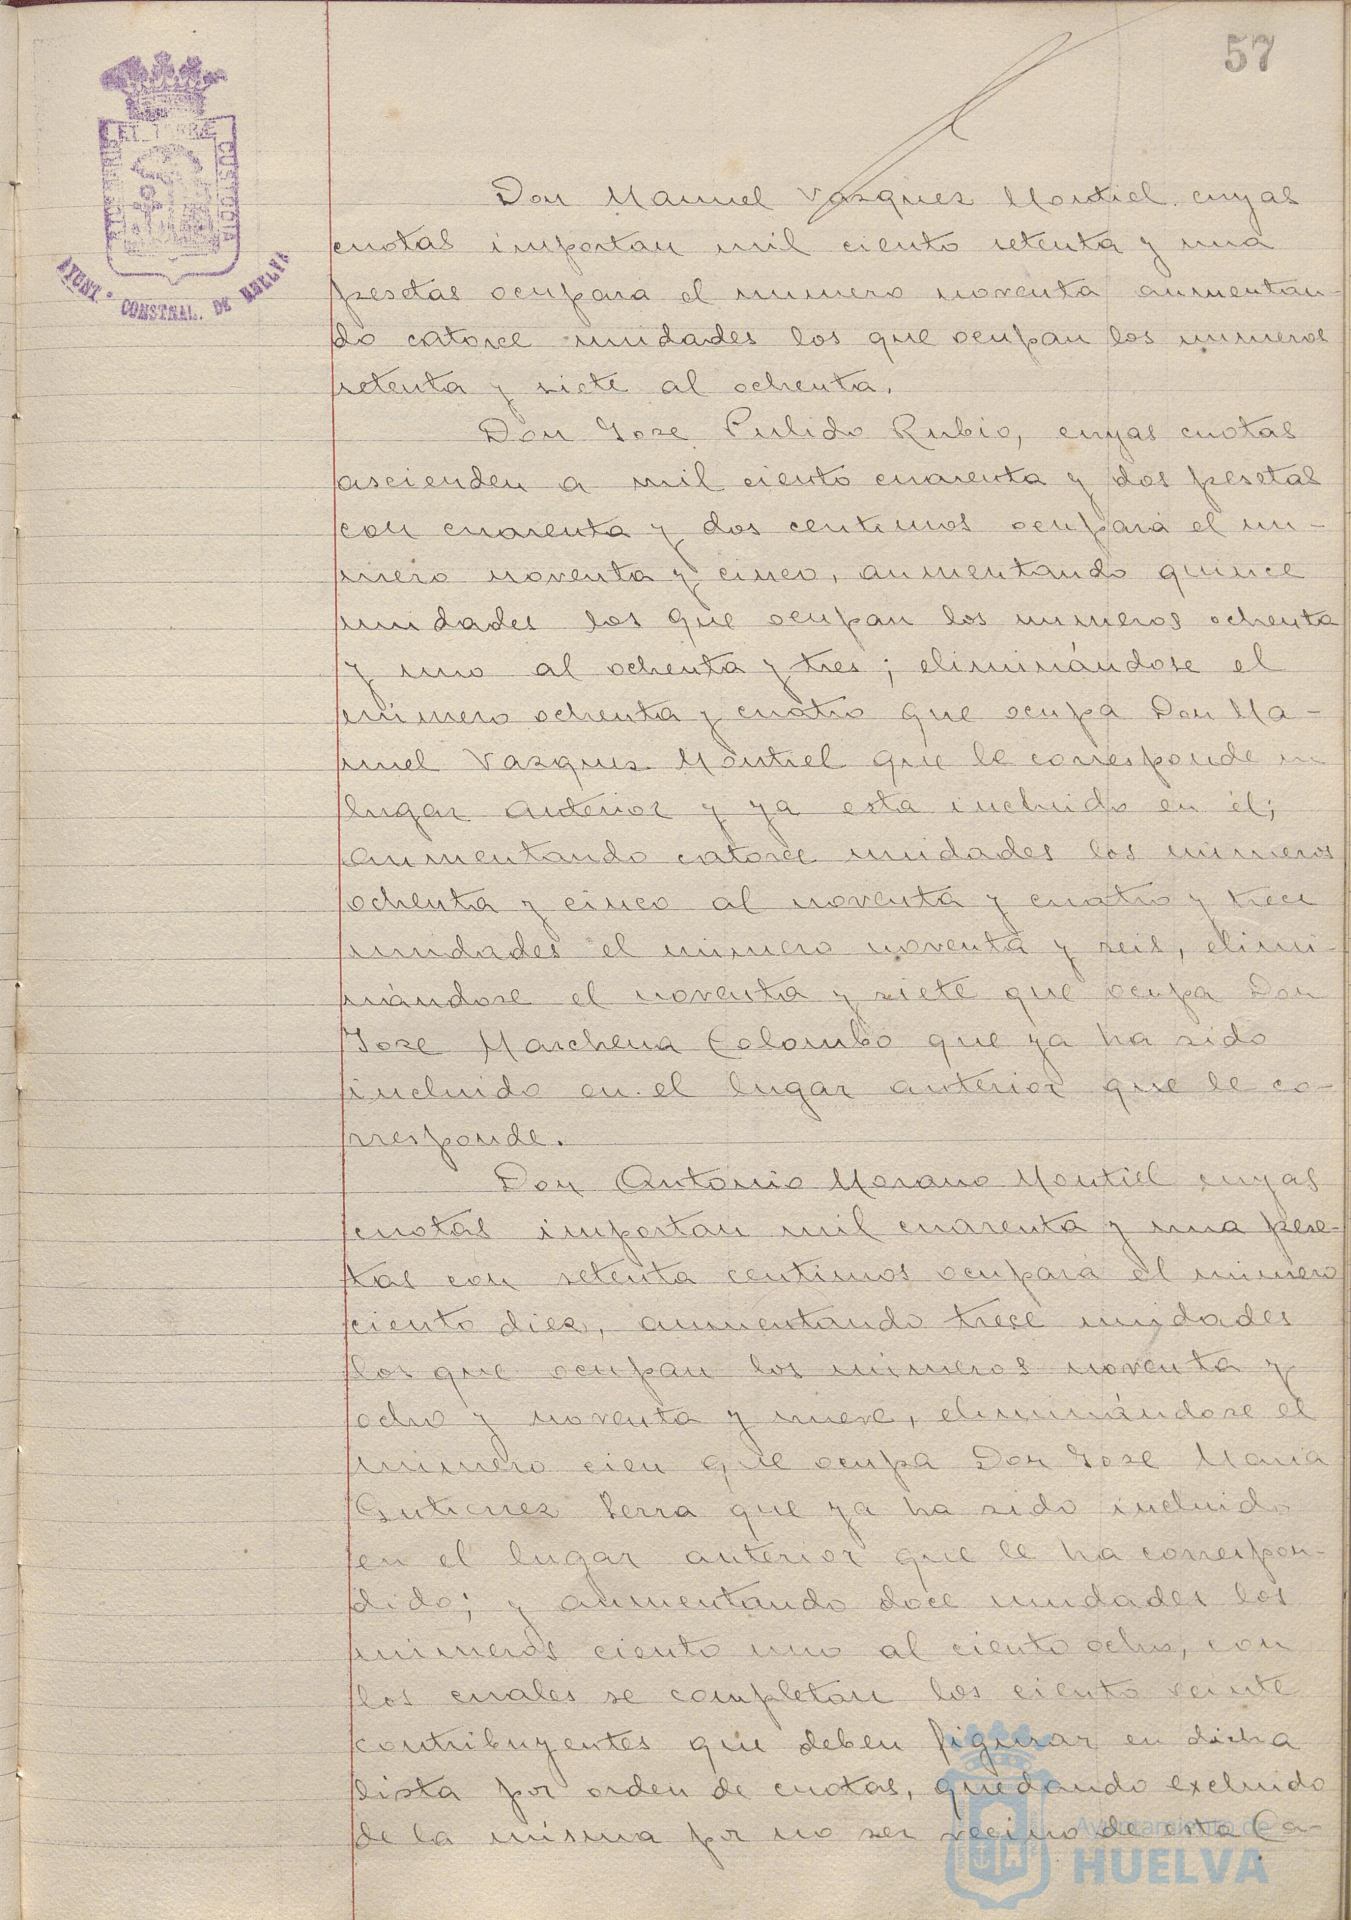 57
PORTUS MARIS ET TERRÆ CUSTODIA
AYUNT. CONSTNAL. DE HUELVA
Don Manuel Vazquez Montiel cuyas
cuotas importan mil ciento setenta y una
pesetas ocupara el numero noventa aumentan-
do catorce unidades los que ocupan los numeros
setenta y siete al ochenta.
Don Jose Pulido Rubio, cuyas cuotas
ascienden a mil ciento cuarenta y dos pesetas
con cuarenta y dos centimos ocupará el nu-
mero noventa y cinco, aumentando quince
unidades los que ocupan los numeros ochenta
y uno al ochenta y tres; eliminándose el
número ochenta y cuatro que ocupa Don Ma-
nuel Vazquez Montiel que le corresponde un
lugar anterior y ya esta incluido en él;
aumentando catorce unidades los números
ochenta y cinco al noventa y cuatro y trece
unidades el número noventa y seis, elimi-
nándose el noventa y siete que ocupa Don
Jose Marchena Colombo que ya ha sido
incluido en el lugar anterior que le co-
rresponde.
Don Antonio Morano Montiel cuyas
cuotas importan mil cuarenta y una pese-
tas con setenta centimos ocupará el número
ciento diez, aumentando trece unidades
los que ocupan los números noventa y
ocho y noventa y nueve, eliminándose el
número cien que ocupa Don Jose Maria
Gutierrez Serra que ya ha sido incluido
en el lugar anterior que le ha correspon-
dido; y aumentando doce unidades los
números ciento uno al ciento ocho, con
los cuales se completan los ciento veinte
contribuyentes que deben figurar en dicha
lista por orden de cuotas, quedando excluido
de la misma por no ser vecino de esta Ca-
Ayuntamiento de
HUELVA